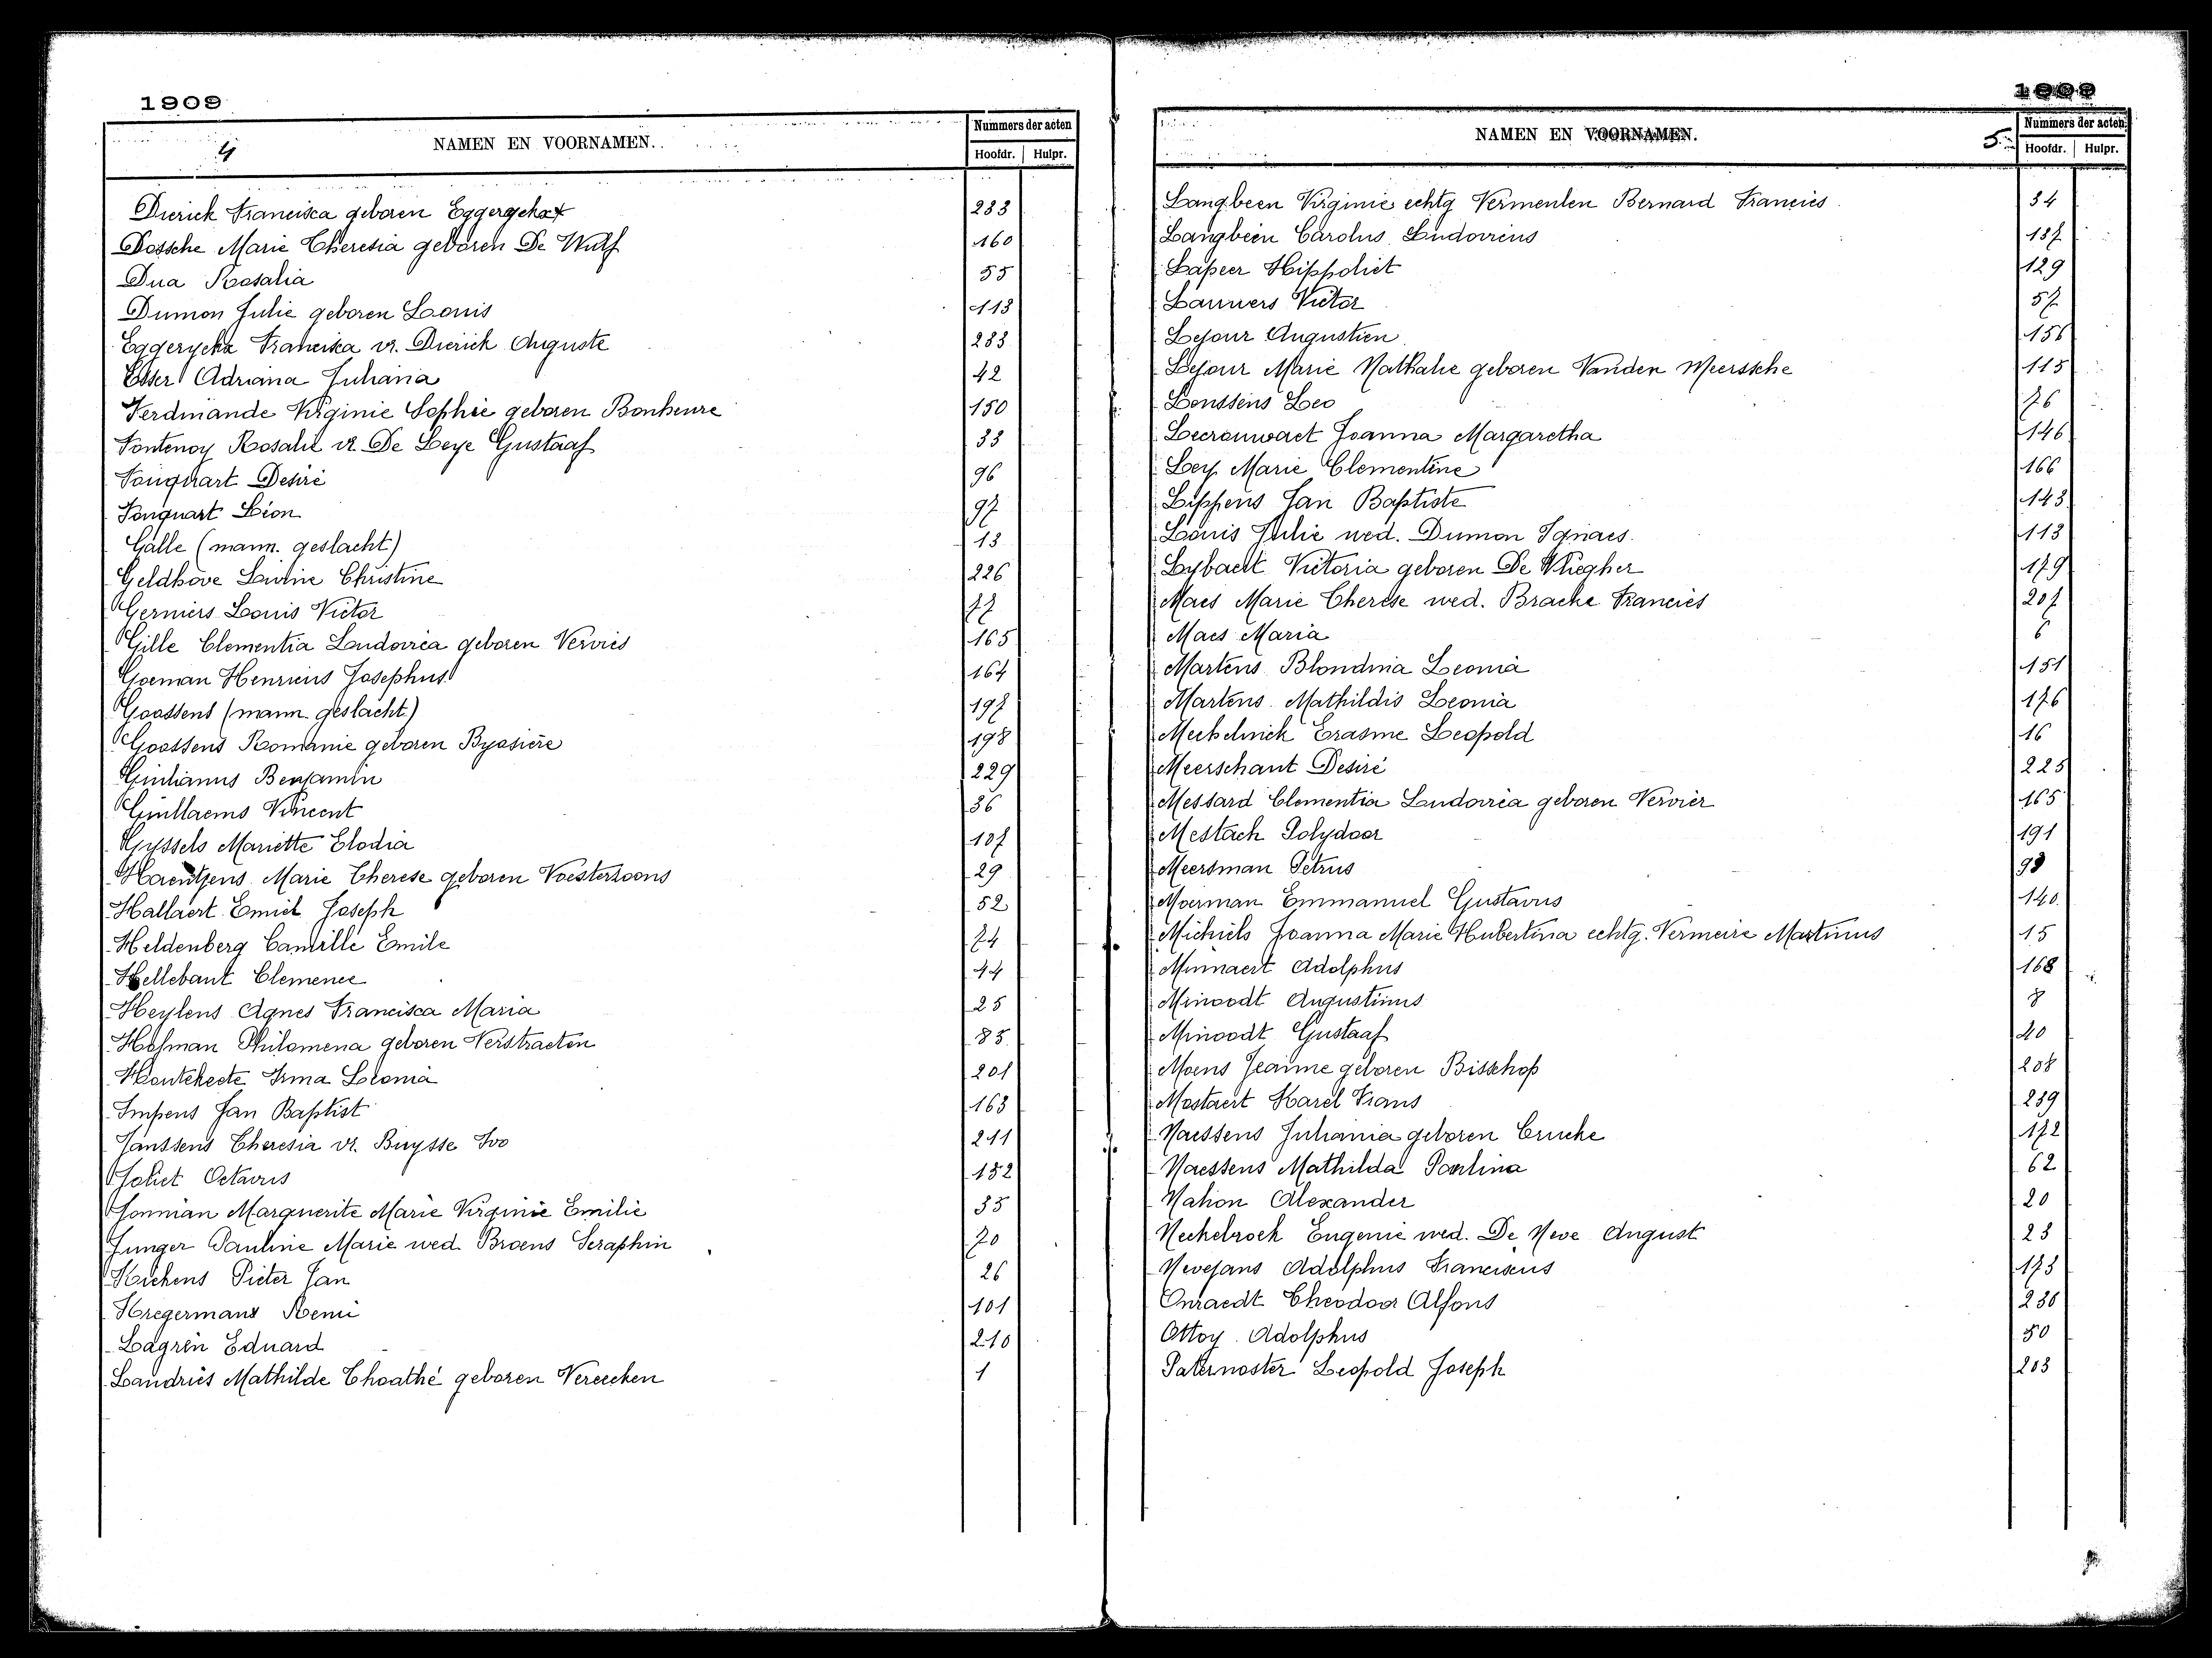 1909
4 NAMEN EN VOORNAMEN. Nummers der acten
Hoofdr. Hulpr.
Dierick Francisca geboren Eggerycka 233
Dossche Marie Theresia geboren De Wulf 160
Dua Rosalia 55
Dumon Julie geboren Louis 113
Eggerycka Francisca vr. Dierick Auguste 233
Esser Adriana Juliana 42
Ferdinande Virginie Sophie geboren Bonheure 150
Fontenoy Rosalie vr. De Leye Gustaaf 33
Fouquart Desiré 96
Fouquart Léon 97
Galle (mann. geslacht) 13
Geldhove Lavine Christine 226
Gerniers Louis Victor 77
Gille Clementia Ludovica geboren Vervies 165
Goeman Henricus Josephus 164
Goossens (mann. geslacht) 197
Goossens Romanie geboren Byasière 198
Giulianus Benjamin 229
Guillaems Vincent 36
Gyssels Mariette Elodia 137
Haentjens Marie Therese geboren Voesterzoons 29
Hallaert Emiel Joseph 52
Heldenberg Camille Emile 74
Hellebaut Clemence 44
Heylens Agnes Francisca Maria 25
Hofman Philomena geboren Verstraeten 85
Houtekeete Irma Leonia 201
Impens Jan Baptist 163
Janssens Theresia vr. Buysse Ivo 211
Joliet Octavus 132
Jonnian Marguerite Marie Virginie Emilie 35
Junger Pauline Marie wed. Broens Seraphin 70
Kiekens Pieter Jan 26
Kregermans Remi 101
Lagrein Eduard 210
Landriès Mathilde Thoathé geboren Vereecken 1
1909
NAMEN EN VOORNAMEN. 5. Nummers der acten
Hoofdr. Hulpr.
Langbeen Virginie echtg Vermeulen Bernard Francies 34
Langbeen Carolus Ludovicus 137
Lapeer Hippoliet 129
Lauwers Victor 57
Lejour Augustien 156
Lejour Marie Nathalie geboren Vanden Meerssche 115
Lenssens Leo 76
Leerouwaet Joanna Margaretha 146
Ley Marie Clementine 166
Lippens Jan Baptiste 143
Louis Julie wed. Dumon Ignaes 113
Lybaert Victoria geboren De Vliegher 179
Maes Marie Therese wed. Bracke Franciès 207
Maes Maria 6
Martens Blondina Leonia 151
Martens Mathildis Leonia 176
Mechelinck Erasme Leopold 16
Meerschaut Desiré 225
Messard Clementia Ludovica geboren Vervier 165
Mestach Polydoor 191
Meersman Petrus 93
Moerman Emmanuel Gustavus 140
Michiels Joanna Marie Hubertina echtg. Vermeire Martinus 15
Minnaert Adolphus 168
Minoodt Augustinus 8
Minoodt Gustaaf 40
Moens Jeanne geboren Bisschop 208
Mostaert Karel Frans 239
Naessens Juliania geboren Crucke 172
Naessens Mathilda Paulina 62
Nahon Alexander 20
Neckebroek Eugenie wed. De Neve August 23
Nevejans Adolphus Franciscus 173
Onraedt Theodoor Alfons 236
Ottoy Adolphus 50
Paternoster Leopold Joseph 203